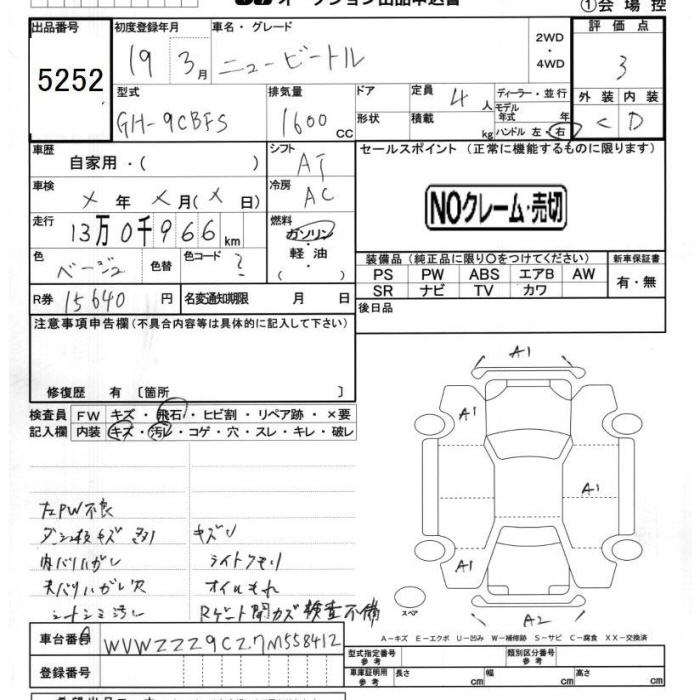 オークション出品申込書 ①会場控
出品番号 初度登録年月 車名・グレード 2WD・4WD 評価点
5252 19 3月 ニュービートル 3
型式 排気量 ドア 定員 4人 ディーラー・並行 外装 内装
GH-9CBFS 1600 CC 形状 積載 kg モデル年式 年 ハンドル 左・右 C D
車歴 自家用・( ) シフト AT セールスポイント(正常に機能するものに限ります)
車検 × 年 × 月(× 日) 冷房 AC
NOクレーム・売切
走行 13万0千966km 燃料 ガソリン・軽油・( )
色 ベージュ 色替 色コード ? 装備品(純正品に限り○をつけてください) 新車保証書
PS PW ABS エアB AW 有・無
R券 15640円 名変通知期限 月 日 SR ナビ TV カワ
注意事項申告欄(不具合内容等は具体的に記入して下さい) 後日品
修復歴 有 〔箇所 〕
検査員 FW キズ・飛石・ヒビ割・リペア跡・×要
記入欄 内装 キズ・汚レ・コゲ・穴・スレ・キレ・破レ
A1
A1
A1 A1
A1
A2
左PW不良
キズ
内バリハガレ ライトクモリ
天バリハガレ穴 オイルもれ
シートシミ汚レ Rゲート開カズ 検査不備
スペア
A-キズ E-エクボ U-凹み W-補修跡 S-サビ C-腐食 XX-交換済
車台番号 WVWZZZ9CZ7M558412
型式指定番号 参考 類別区分番号 参考
登録番号 車庫証明用 参考 長さ cm 幅 cm 高さ cm